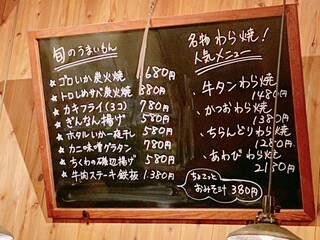 旬のうまいもん
★ゴロいか炭火焼 680円
★トロしめサバ炭火焼 880円
★カキフライ(3コ) 780円
★ぎんなん揚げ 580円
★ホタルいか一夜干し 580円
★カニ味噌グラタン 780円
★ちくわの磯辺揚げ 580円
★牛肉ステーキ鉄板 1.380円
名物 わら焼!
人気メニュー
・牛タンわら焼
1480円
・かつおわら焼
1380円
・ちらんどりわら焼
1280円
・あわびわら焼
2180円
ちょこっと
おみそ汁 380円